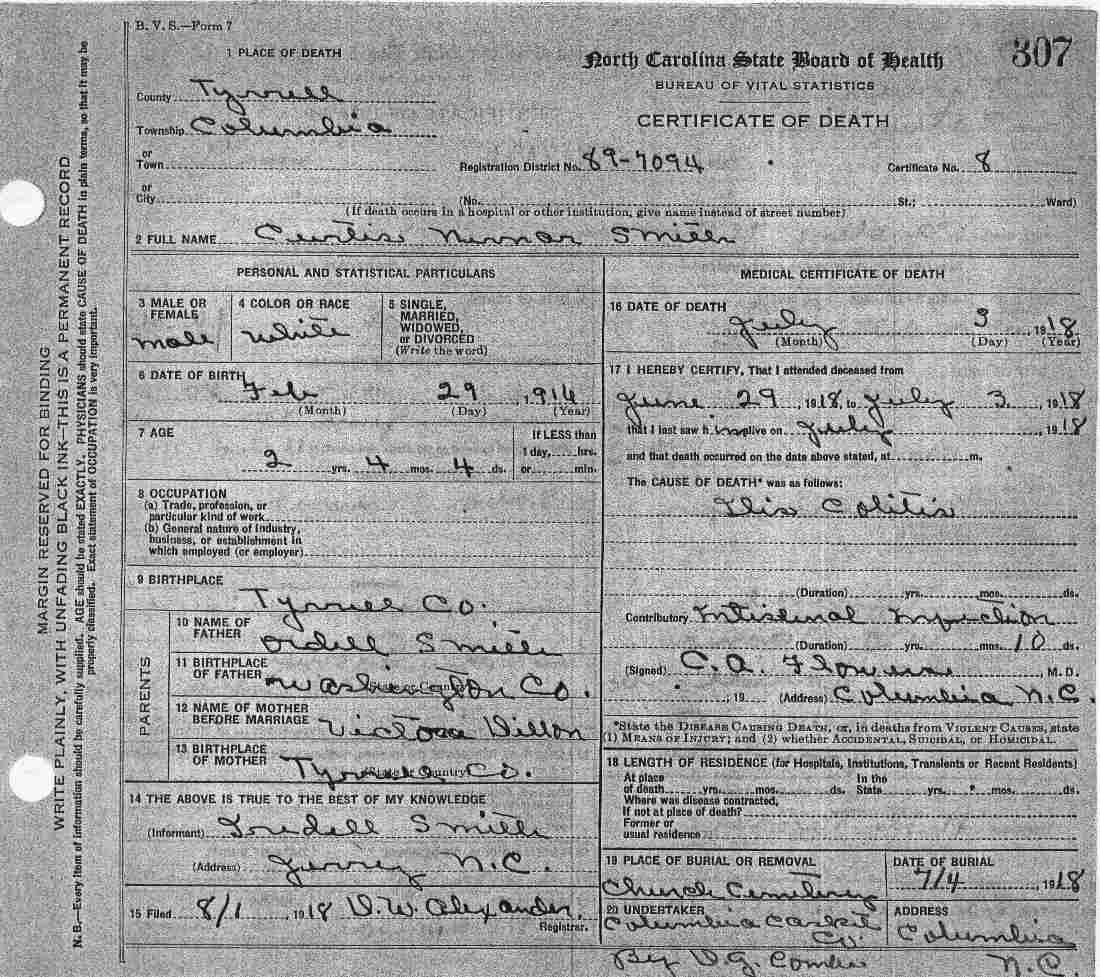 B. V. S.—Form 7
307
1 PLACE OF DEATH
North Carolina State Board of Health
BUREAU OF VITAL STATISTICS
CERTIFICATE OF DEATH
County Tyrrell
Township Columbia
or
Town
Registration District No. 89-7094
Certificate No. 8
or
City
(No. St.; Ward)
(If death occurs in a hospital or other institution, give name instead of street number)
2 FULL NAME Curtis Smith
PERSONAL AND STATISTICAL PARTICULARS
3 MALE OR FEMALE
male
4 COLOR OR RACE
white
5 SINGLE,
MARRIED,
WIDOWED,
or DIVORCED
(Write the word)
6 DATE OF BIRTH
Feb 29, 1916
(Month) (Day) (Year)
7 AGE
2 yrs. 4 mos. 4 ds.
If LESS than
1 day, hrs.
or min.
8 OCCUPATION
(a) Trade, profession, or
particular kind of work
(b) General nature of industry,
business, or establishment in
which employed (or employer)
9 BIRTHPLACE
Tyrrell Co.
PARENTS
10 NAME OF
FATHER
Ordell Smith
11 BIRTHPLACE
OF FATHER
Washington Co.
12 NAME OF MOTHER
BEFORE MARRIAGE
Victoria Dillon
13 BIRTHPLACE
OF MOTHER
Tyrrell Co.
14 THE ABOVE IS TRUE TO THE BEST OF MY KNOWLEDGE
(Informant) Smith
(Address) N.C.
15 Filed 8/1, 1918 D.W. Alexander,
Registrar.
MEDICAL CERTIFICATE OF DEATH
16 DATE OF DEATH
July 3, 1918
(Month) (Day) (Year)
17 I HEREBY CERTIFY, That I attended deceased from
June 29, 1918, to July 3, 1918
that I last saw h im alive on July, 1918
and that death occurred on the date above stated, at m.
The CAUSE OF DEATH* was as follows:
Colitis
(Duration) yrs. mos. ds.
Contributory Intestinal
(Duration) yrs. mos. 10 ds.
(Signed) C.A. Flowers M. D.
, 19 (Address) Columbia N.C.
*State the DISEASE CAUSING DEATH, or, in deaths from VIOLENT CAUSES, state
(1) MEANS OF INJURY; and (2) whether ACCIDENTAL, SUICIDAL, or HOMICIDAL.
18 LENGTH OF RESIDENCE (for Hospitals, Institutions, Transients or Recent Residents)
At place
of death yrs. mos. ds.
In the
State yrs. mos. ds.
Where was disease contracted,
If not at place of death?
Former or
usual residence
19 PLACE OF BURIAL OR REMOVAL
Church Cemetery
DATE OF BURIAL
7/4, 1918
20 UNDERTAKER
Columbia Casket
Co.
By D.G.
ADDRESS
Columbia
N.C.
MARGIN RESERVED FOR BINDING
WRITE PLAINLY, WITH UNFADING BLACK INK—THIS IS A PERMANENT RECORD
N. B.—Every item of information should be carefully supplied. AGE should be stated EXACTLY. PHYSICIANS should state CAUSE OF DEATH in plain terms, so that it may be
properly classified. Exact statement of OCCUPATION is very important.